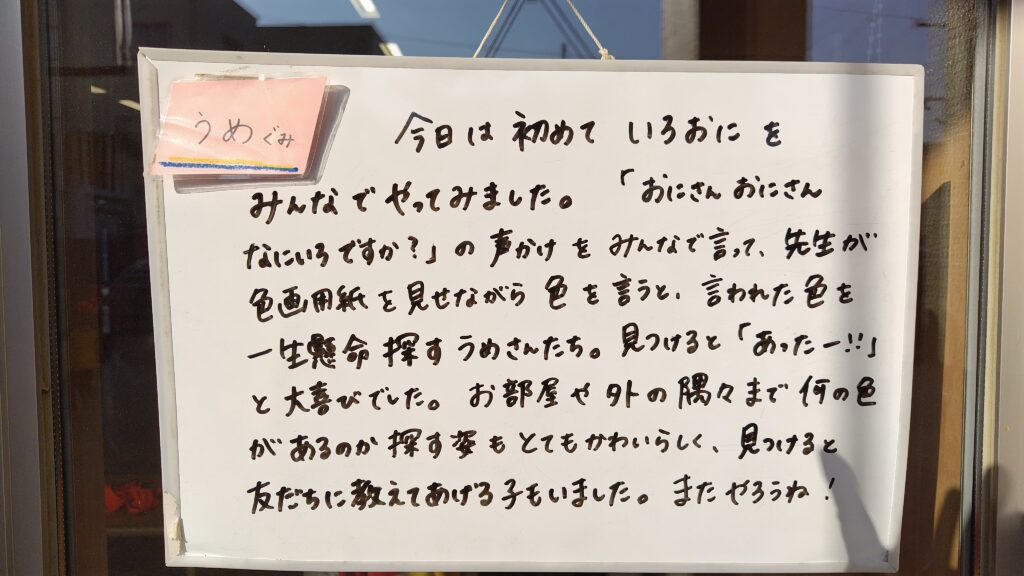 うめぐみ
今日は初めていろおにを
みんなでやってみました。「おにさんおにさん
なにいろですか？」の声かけをみんなで言って、先生が
色画用紙を見せながら色を言うと、言われた色を
一生懸命探すうめさんたち。見つけると「あったー!!」
と大喜びでした。お部屋や外の隅々まで何の色
があるのか探す姿もとてもかわいらしく、見つけると
友だちに教えてあげる子もいました。またやろうね！